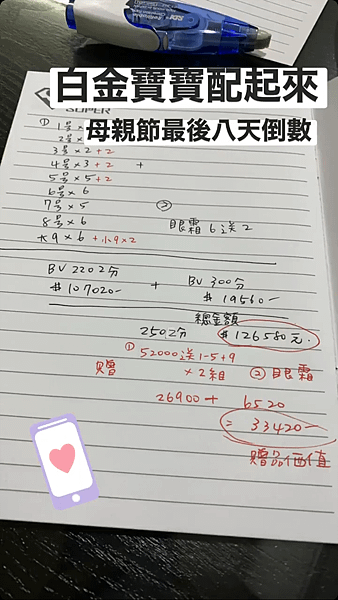 白金寶寶配起來
母親節最後八天倒數
SUPER
① 1号×
2号×
3号×2+2
4号×3+2 +
5号×5+2
6号×6
7号×5 ②
8号×6 眼霜6送2
大9×6+小9×2
BV 2202分 + BV 300分
$107020- $19560-
總金額
2502分 $126580元.
① 52000送1-5+9
贈 ×2組 ② 眼霜
26900 + 6520
= 33420-
贈品価值